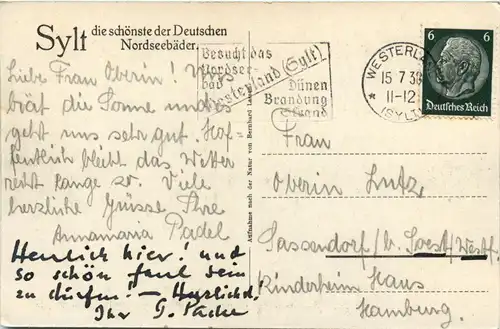 Sylt die schönste der Deutschen
Nordseebäder
Besucht das
Nordsee-
bad
Westerland (Sylt)
Dünen
Brandung
Strand
WESTERLAND
15 7 38
11-12
* (SYLT)
6 6
Deutsches Reich
Liebe Frau Oberin!
brät die Sonne und es
geht uns sehr gut. Hof-
fentlich bleibt das Wetter
recht lange so. Viele
herzliche Grüsse Ihre
Annamaria Padel
Herrlich hier! und
so schön faul sein
zu dürfen! – Herzlichst
Ihr G. Padel
Aufnahme nach der Natur von Bernhard
Frau
Oberin Lutz,
Sassendorf/b. Soest/Westf.
Kinderheim Haus
Hamburg.